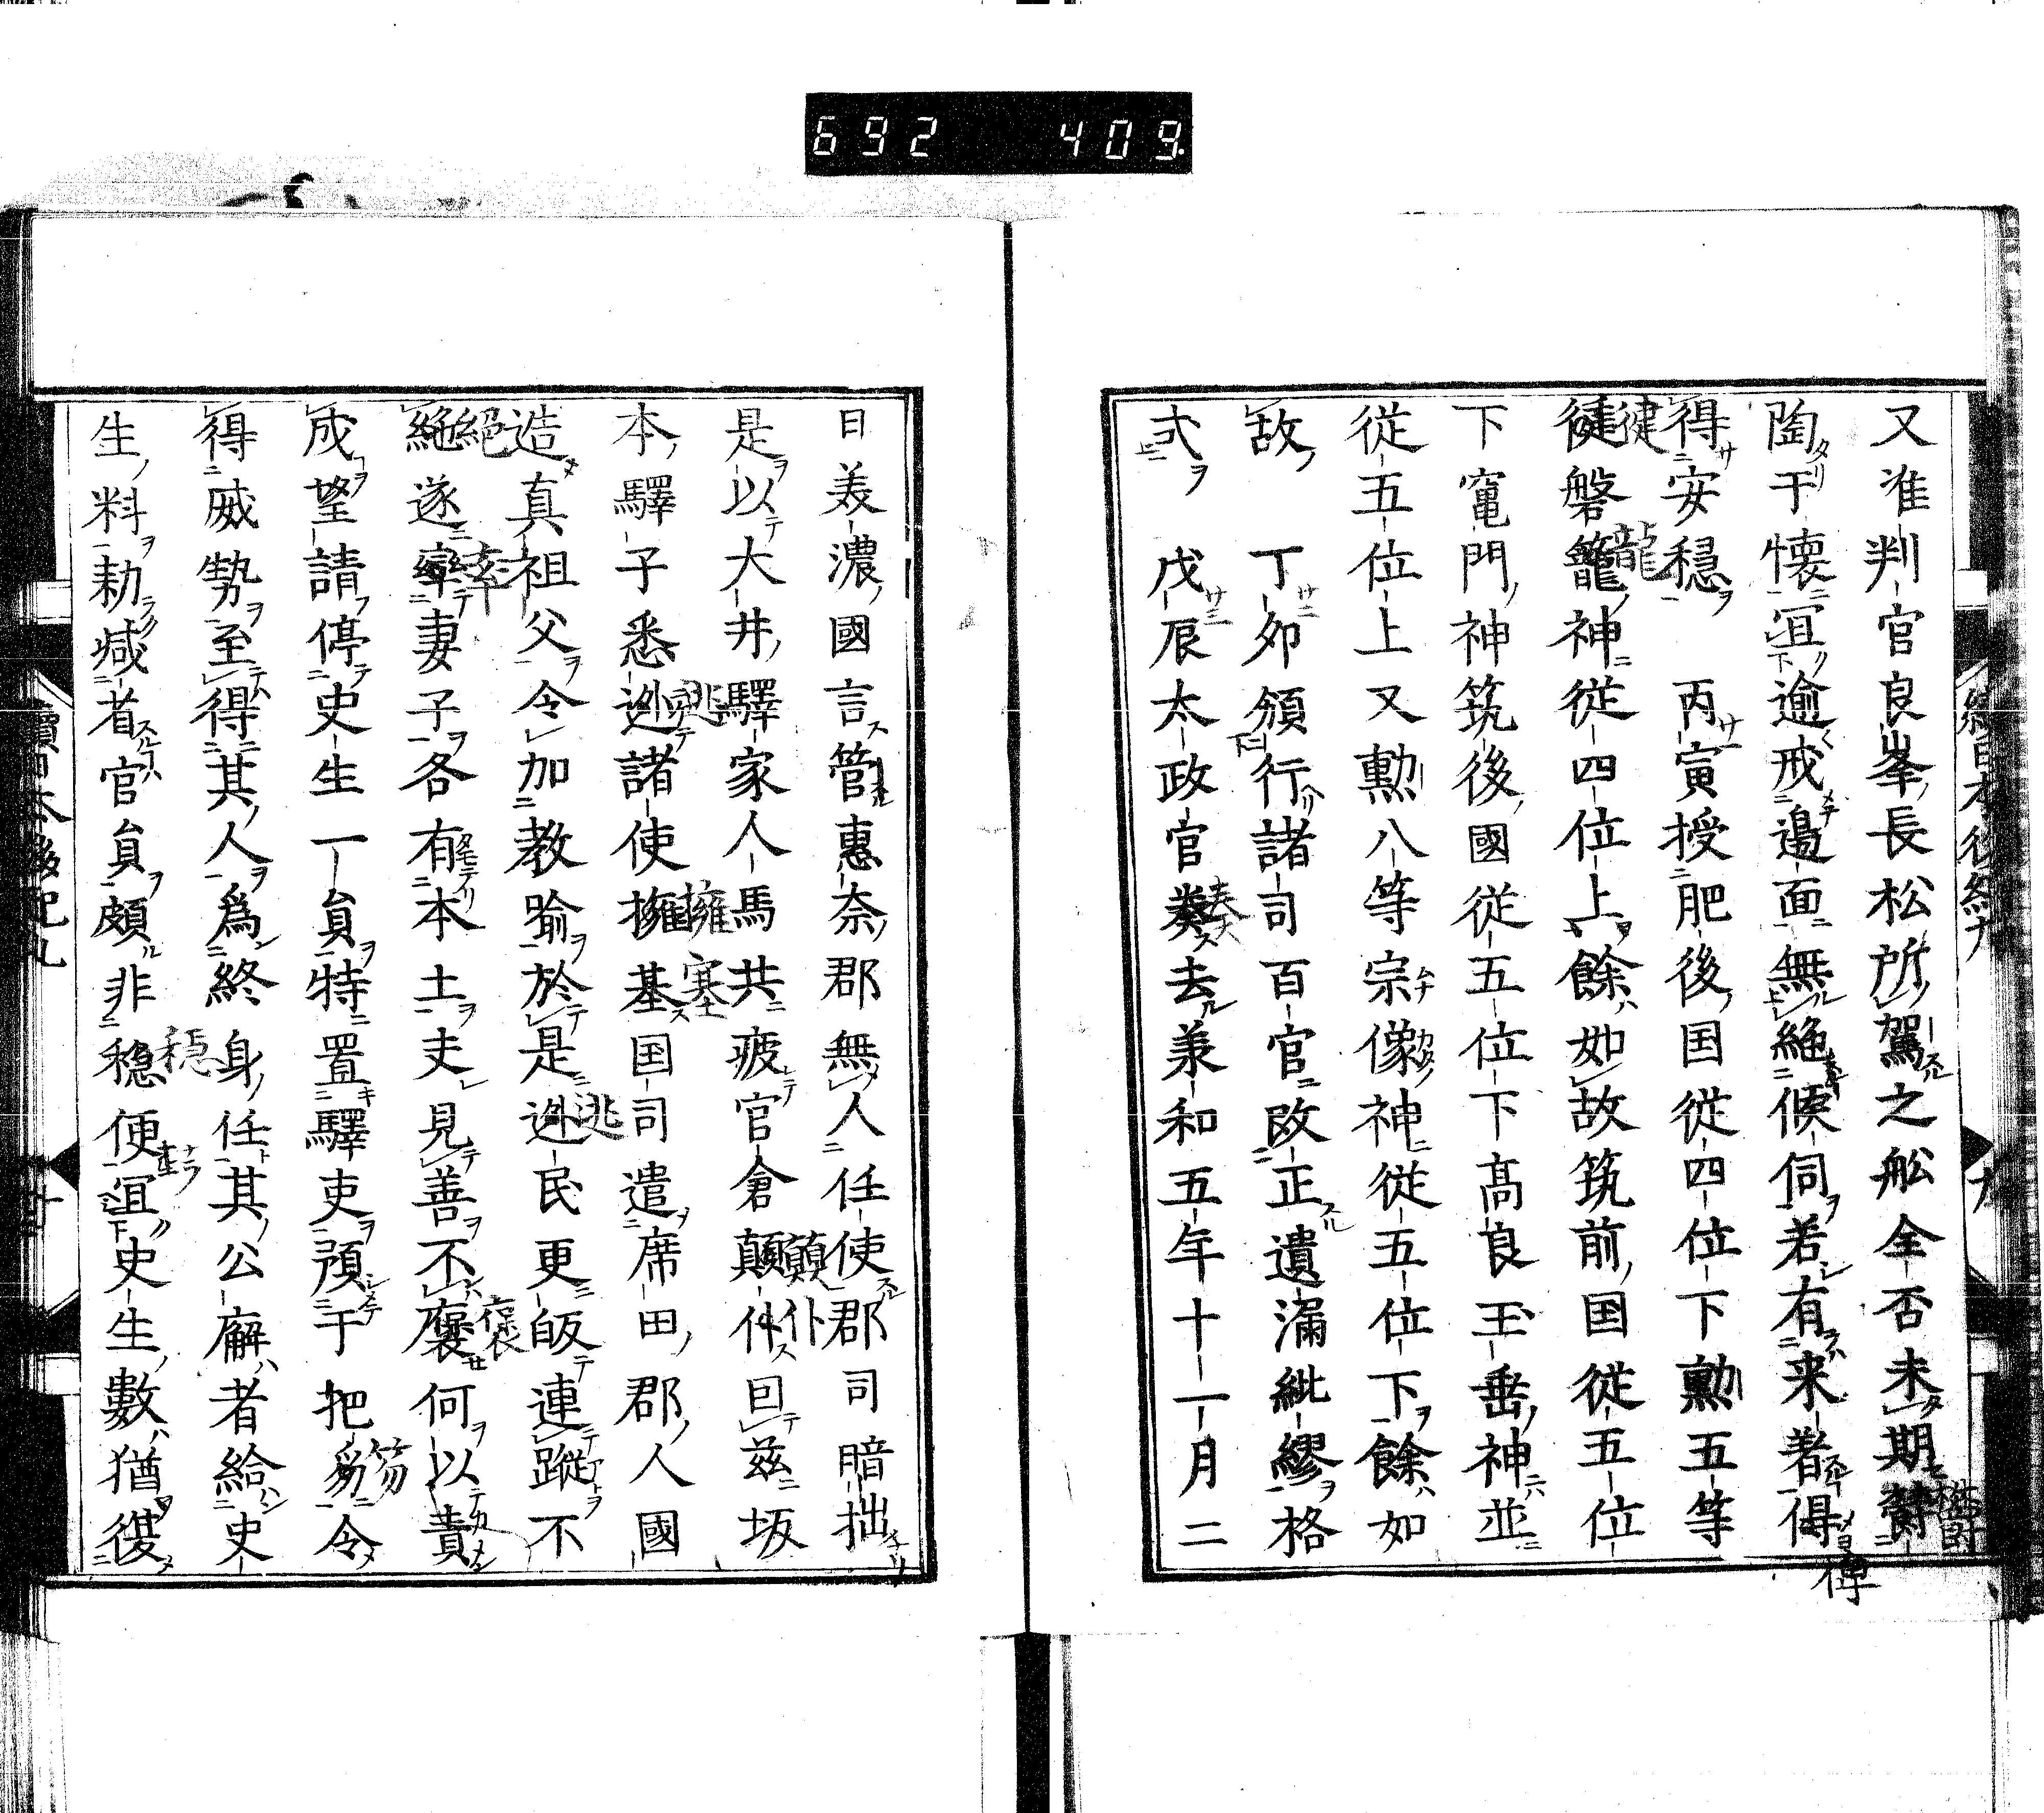 692 409
續日本後紀九
九
又准判官良岑長松所駕之舩全否未期
陶于懐冝逾戒邉面無絶候伺若有来着得
得安穏 丙寅授肥後国従四位下勲五等
健磐龍神従四位上餘如故筑前国従五位
下竈門神筑後國従五位下髙良玉垂神並
従五位上又勲八等宗像神従五位下餘如
故 丁夘頒行諸司百官改正遺漏紕繆格
式 戊辰太政官奏去羕和五年十一月二
日美濃國言管惠奈郡無人任使郡司暗拙
是以大井驛家人馬共疲官倉顛仆囙兹坂
本驛子悉逃諸使擁基国司遣席田郡人國
造真祖父令加教喻於是逃民更皈連蹤不
絶遂率妻子各有本土吏見善不褒何以責
成望請停史生一貟特置驛吏預于把笏令
得威勢至得其人爲終身任其公廨者給史
生料勅减省官貟頗非穏便冝史生數猶復
續日本後紀九